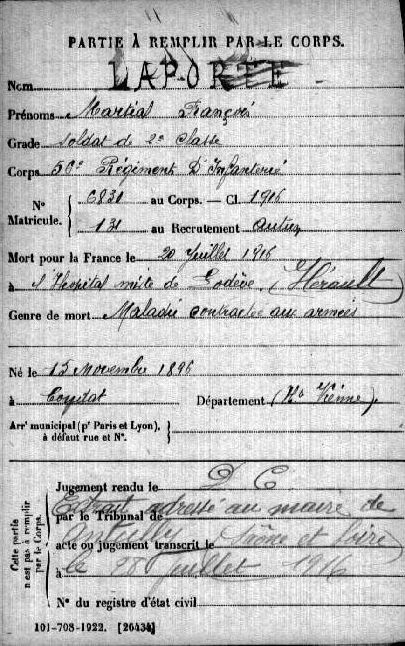 PARTIE À REMPLIR PAR LE CORPS.
Nom LAPORTE
Prénoms Martial François
Grade Soldat de 2e Classe
Corps 56e Régiment D'Infanterie
N° Matricule. { 6831 au Corps. — Cl. 1916
131 au Recrutement Autun
Mort pour la France le 20 Juillet 1916
à l'Hôpital mixte de Lodève (Hérault)
Genre de mort Maladie contractée aux armées
Né le 15 Novembre 1896
à Département (Hte Vienne)
Arrt municipal (pr Paris et Lyon), à défaut rue et N°. }
Cette partie n'est pas à remplir par le Corps.
Jugement rendu le D C
par le Tribunal de Extrait adressé au maire de
acte ou jugement transcrit le Saône et Loire
à le 28 Juillet 1916
N° du registre d'état civil
101-708-1922. [26434]